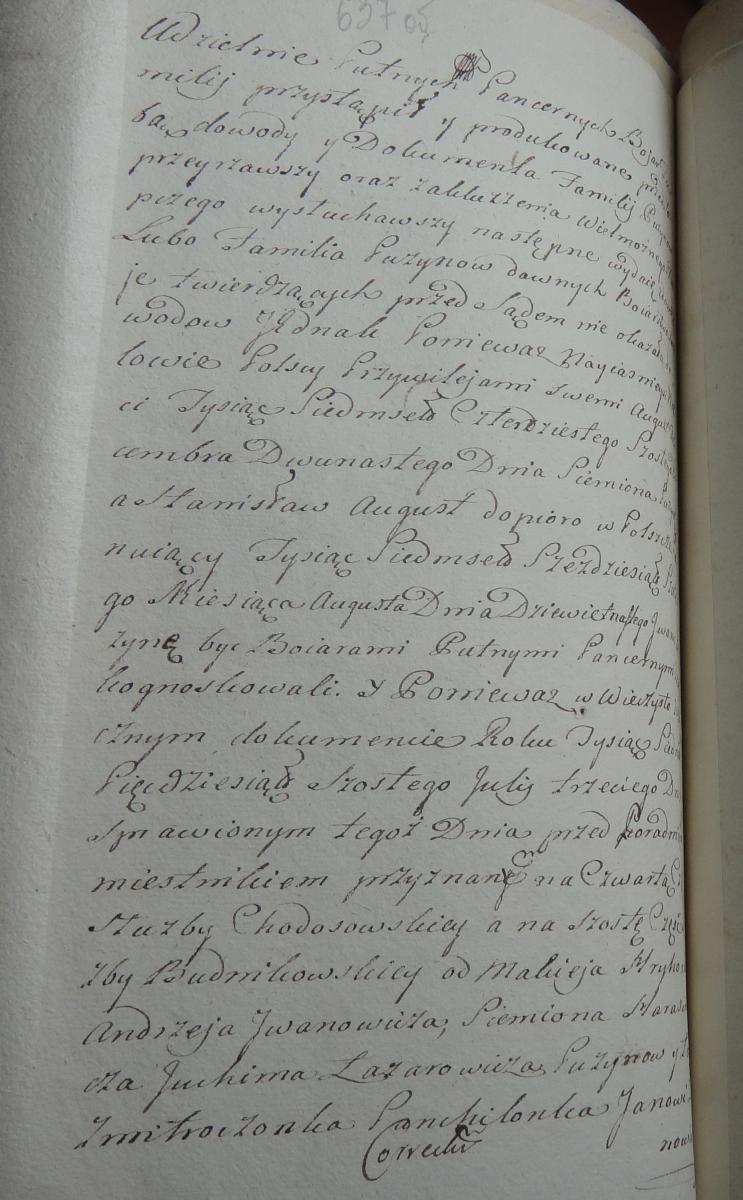 637 об
Udzielnie Putnych Pancernych Bojar
milij przystąpił y produkowane
ba dowody y Dokumenta Familij
przeyrzawszy oraz zakluczenia Wielmożnego
pczego wysłuchawszy następne wydaię
Lubo Familia Puzynow dawnych Boiarstwo
je twierdzących przed Sądem nie okazała
wodow Jednak Poniewaz Nayiasnieysi
lowie Polscy Przywilejami swemi August
ci Tysiąc Siedmset Czterdziestego Szostego
cembra Dwunastego Dnia Siemiona
a Stanisław August dopioro w Polszcze
nuiący Tysiąc Siedmset Szezdziesiąt
go Miesiąca Augusta Dnia Dziewietnastego Jwana
zynę byc Boiarami Putnymi Pancernymi
kognoskowali. Y Poniewaz w Wieczysto
cznym dokumencie Roku Tysiąc Siedm
Pięcdziesiąt Szostego Julij trzeciego Dnia
Sprawionym tegoż Dnia przed
miestnikiem przyznanę na Czwartą
Służby Chodosowskiey a na Szostę Częsc
zby Budnikowskiey od Makieja Hryho
Andrzeja Jwanowicza, Siemiona Haras
cza Juchima Łazarowicza Puzynow y
Zmitroczonka Panchilonka Janowi
Correctum
now